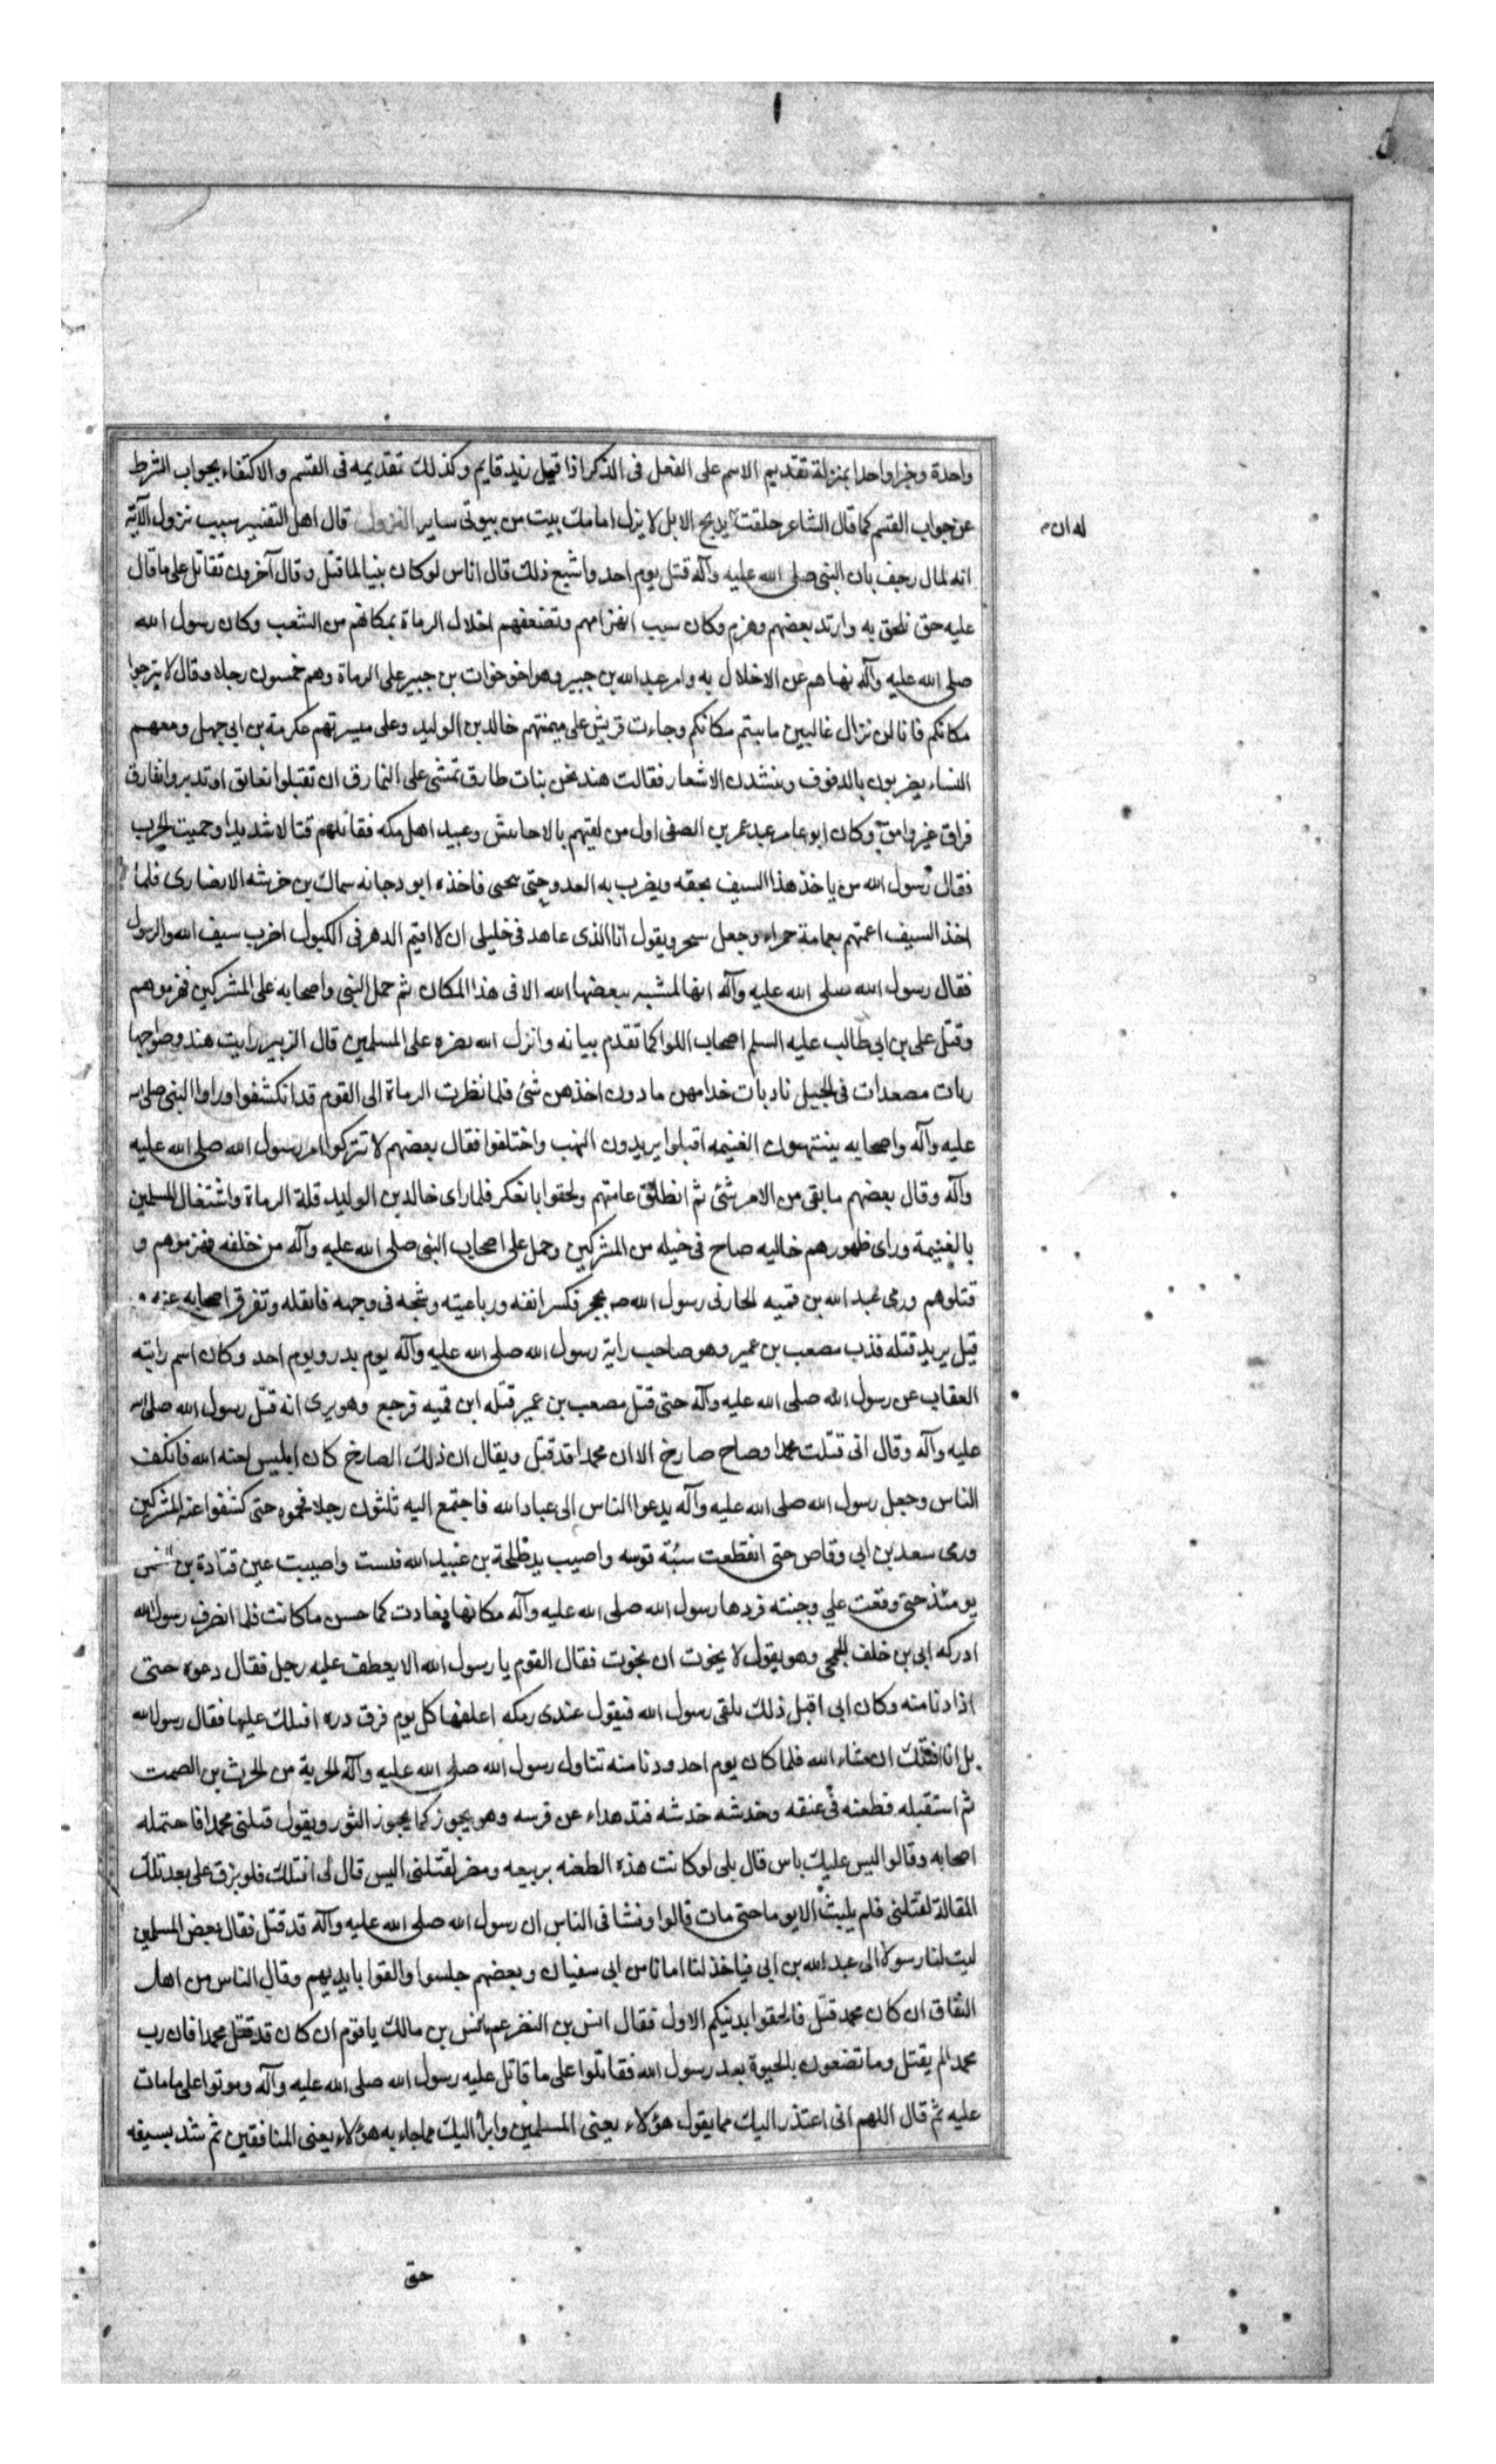 واحدة وجزا واحدا بمنزلة تقديم الاسم على الفعل فى الذكر اذا قيل زيد قايم وكذلك تقديمه فى القسم والاكتفاء بجواب الشرط
عن جواب القسم كما قال الشاعر حلفت يدبح الابل لا يزل امامك بيت من بيوتى ساير النزول قال اهل التفسير سبب نزول الآية
له ان م
انه لما ارجف بان النبى صلى الله عليه وآله قتل يوم احد واشيع ذلك قال اناس لو كان نبيا لما قتل وقال آخرون نقاتل على ما قال
عليه حتى نلحق به وارتد بعضهم وهزم وكان سبب انهزامهم وتضعفهم اخلال الرماة بمكانهم من الشعب وكان رسول الله
صلى الله عليه وآله نهاهم عن الاخلال به وامر عبد الله بن جبير وهو اخو خوات بن جبير على الرماة وهم خمسون رجلا وقال لا تبرحوا
مكانكم فانا لن نزال غالبين ما ثبتم مكانكم وجاءت قريش على ميمنتهم خالد بن الوليد وعلى ميسرتهم عكرمة بن ابى جهل ومعهم
النساء يضربون بالدفوف وينشدن الاشعار فقالت هند نحن بنات طارق نمشى على النمارق ان تقبلوا نعانق او تدبروا نفارق
فراق غير وامق وكان ابو عامر عبد عمر بن الصفى اول من لقيهم بالاحابيش وعبيد اهل مكه فقاتلهم قتالا شديدا وحميت الحرب
فقال رسول الله من ياخذ هذا السيف بحقه ويضرب به العدو حتى ينحنى فاخذه ابو دجانه سماك بن خرشه الانصارى فلما
اخذ السيف اعتم بعمامة حمراء وجعل يتبختر ويقول انا الذى عاهدنى خليلى ان لا اقيم الدهر فى الكيول اضرب بسيف الله والرسول
فقال رسول الله صلى الله عليه وآله انها لمشيه يبغضها الله الا فى هذا المكان ثم حمل النبى واصحابه على المشركين فهزموهم
وقتل على بن ابى طالب عليه السلم اصحاب اللوا كما تقدم بيانه وانزل الله نصره على المسلمين قال الزبير رايت هند وصواحبها
ربات مصعدات فى الجبل ناديات خدامهن ما دون اخذهن شئ فلما نظرت الرماة الى القوم قد انكشفوا وراوا النبى صلى الله
عليه وآله واصحابه ينتهبون الغنيمه اقبلوا يريدون النهب واختلفوا فقال بعضهم لا تتركوا امر رسول الله صلى الله عليه
وآله وقال بعضهم ما بقى من الامر شئ ثم انطلق عامتهم ولحقوا بالعسكر فلما راى خالد بن الوليد قلة الرماة واشتغال المسلمين
بالغنيمة وراى ظهورهم خاليه صاح فى خيله من المشركين وحمل على اصحاب النبى صلى الله عليه وآله من خلفه فهزموهم و
قتلوهم ورمى عبد الله بن قميه الحارثى رسول الله ص بحجر فكسر انفه ورباعيته وشجه فى وجهه فاثقله وتفرق اصحابه عنه و
قيل يريد قتله فذب مصعب بن عمير وهو صاحب راية رسول الله صلى الله عليه وآله يوم بدر ويوم احد وكان اسم رايته
العقاب عن رسول الله صلى الله عليه وآله حتى قتل مصعب بن عمير قتله ابن قميه فرجع وهو يرى انه قتل رسول الله صلى الله
عليه وآله وقال انى قتلت محمدا وصاح صارخ الا ان محمدا قد قتل ويقال ان ذلك الصارخ كان ابليس لعنه الله فانكفت
الناس وجعل رسول الله صلى الله عليه وآله يدعوا الناس الى عباد الله فاجتمع اليه ثلثون رجلا فحموه حتى كشفوا عنه المشركين
ورمى سعد بن ابى وقاص حتى انقطعت سئة قوسه واصيب يد طلحة بن عبيد الله فيبست واصيبت عين قتادة بن
يومئذ حتى وقعت على وجنته فردها رسول الله صلى الله عليه وآله مكانها فعادت كما حسن ما كانت فلما انصرف رسول الله
ادركه ابى بن خلف الجمحى وهو يقول لا نجوت ان نجوت فقال القوم يا رسول الله الا يعطف عليه رجل فقال دعوه حتى
اذا دنا منه وكان ابى اقبل ذلك يلقى رسول الله فيقول عندى رمكه اعلفها كل يوم فرق دره اقتلك عليها فقال رسول الله
بل انا اقتلك ان شاء الله فلما كان يوم احد ودنا منه تناول رسول الله صلى الله عليه وآله الحربة من الحرث بن الصمت
ثم استقبله فطعنه فى عنقه وخدشه خدشه فتدهداء عن فرسه وهو يخور كما يخور الثور ويقول قتلنى محمد فاحتمله
اصحابه وقالوا ليس عليك باس قال بلى لو كانت هذه الطعنه بربيعه ومضر لقتلتنى اليس قال لى اقتلك فلو بزق على بعد تلك
المقالة لقتلنى فلم يلبث الا يوما حتى مات قالوا وفشا فى الناس ان رسول الله صلى الله عليه وآله قد قتل فقال بعض المسلمين
ليت لنا رسولا الى عبد الله بن ابى فياخذ لنا امانا من ابى سفيان وبعضهم جلسوا والقوا بايديهم وقال الناس من اهل
النفاق ان كان محمد قتل فالحقوا بدينكم الاول فقال انس بن النضر عم انس بن مالك يا قوم ان كان قد قتل محمد فان رب
محمد لم يقتل وما تصنعون بالحيوة بعد رسول الله فقاتلوا على ما قاتل عليه رسول الله صلى الله عليه وآله وموتوا على ما مات
عليه ثم قال اللهم انى اعتذر اليك مما يقول هؤلاء يعنى المسلمين وابرأ اليك مما جاء به هؤلاء يعنى المنافقين ثم شد بسيفه
حتى